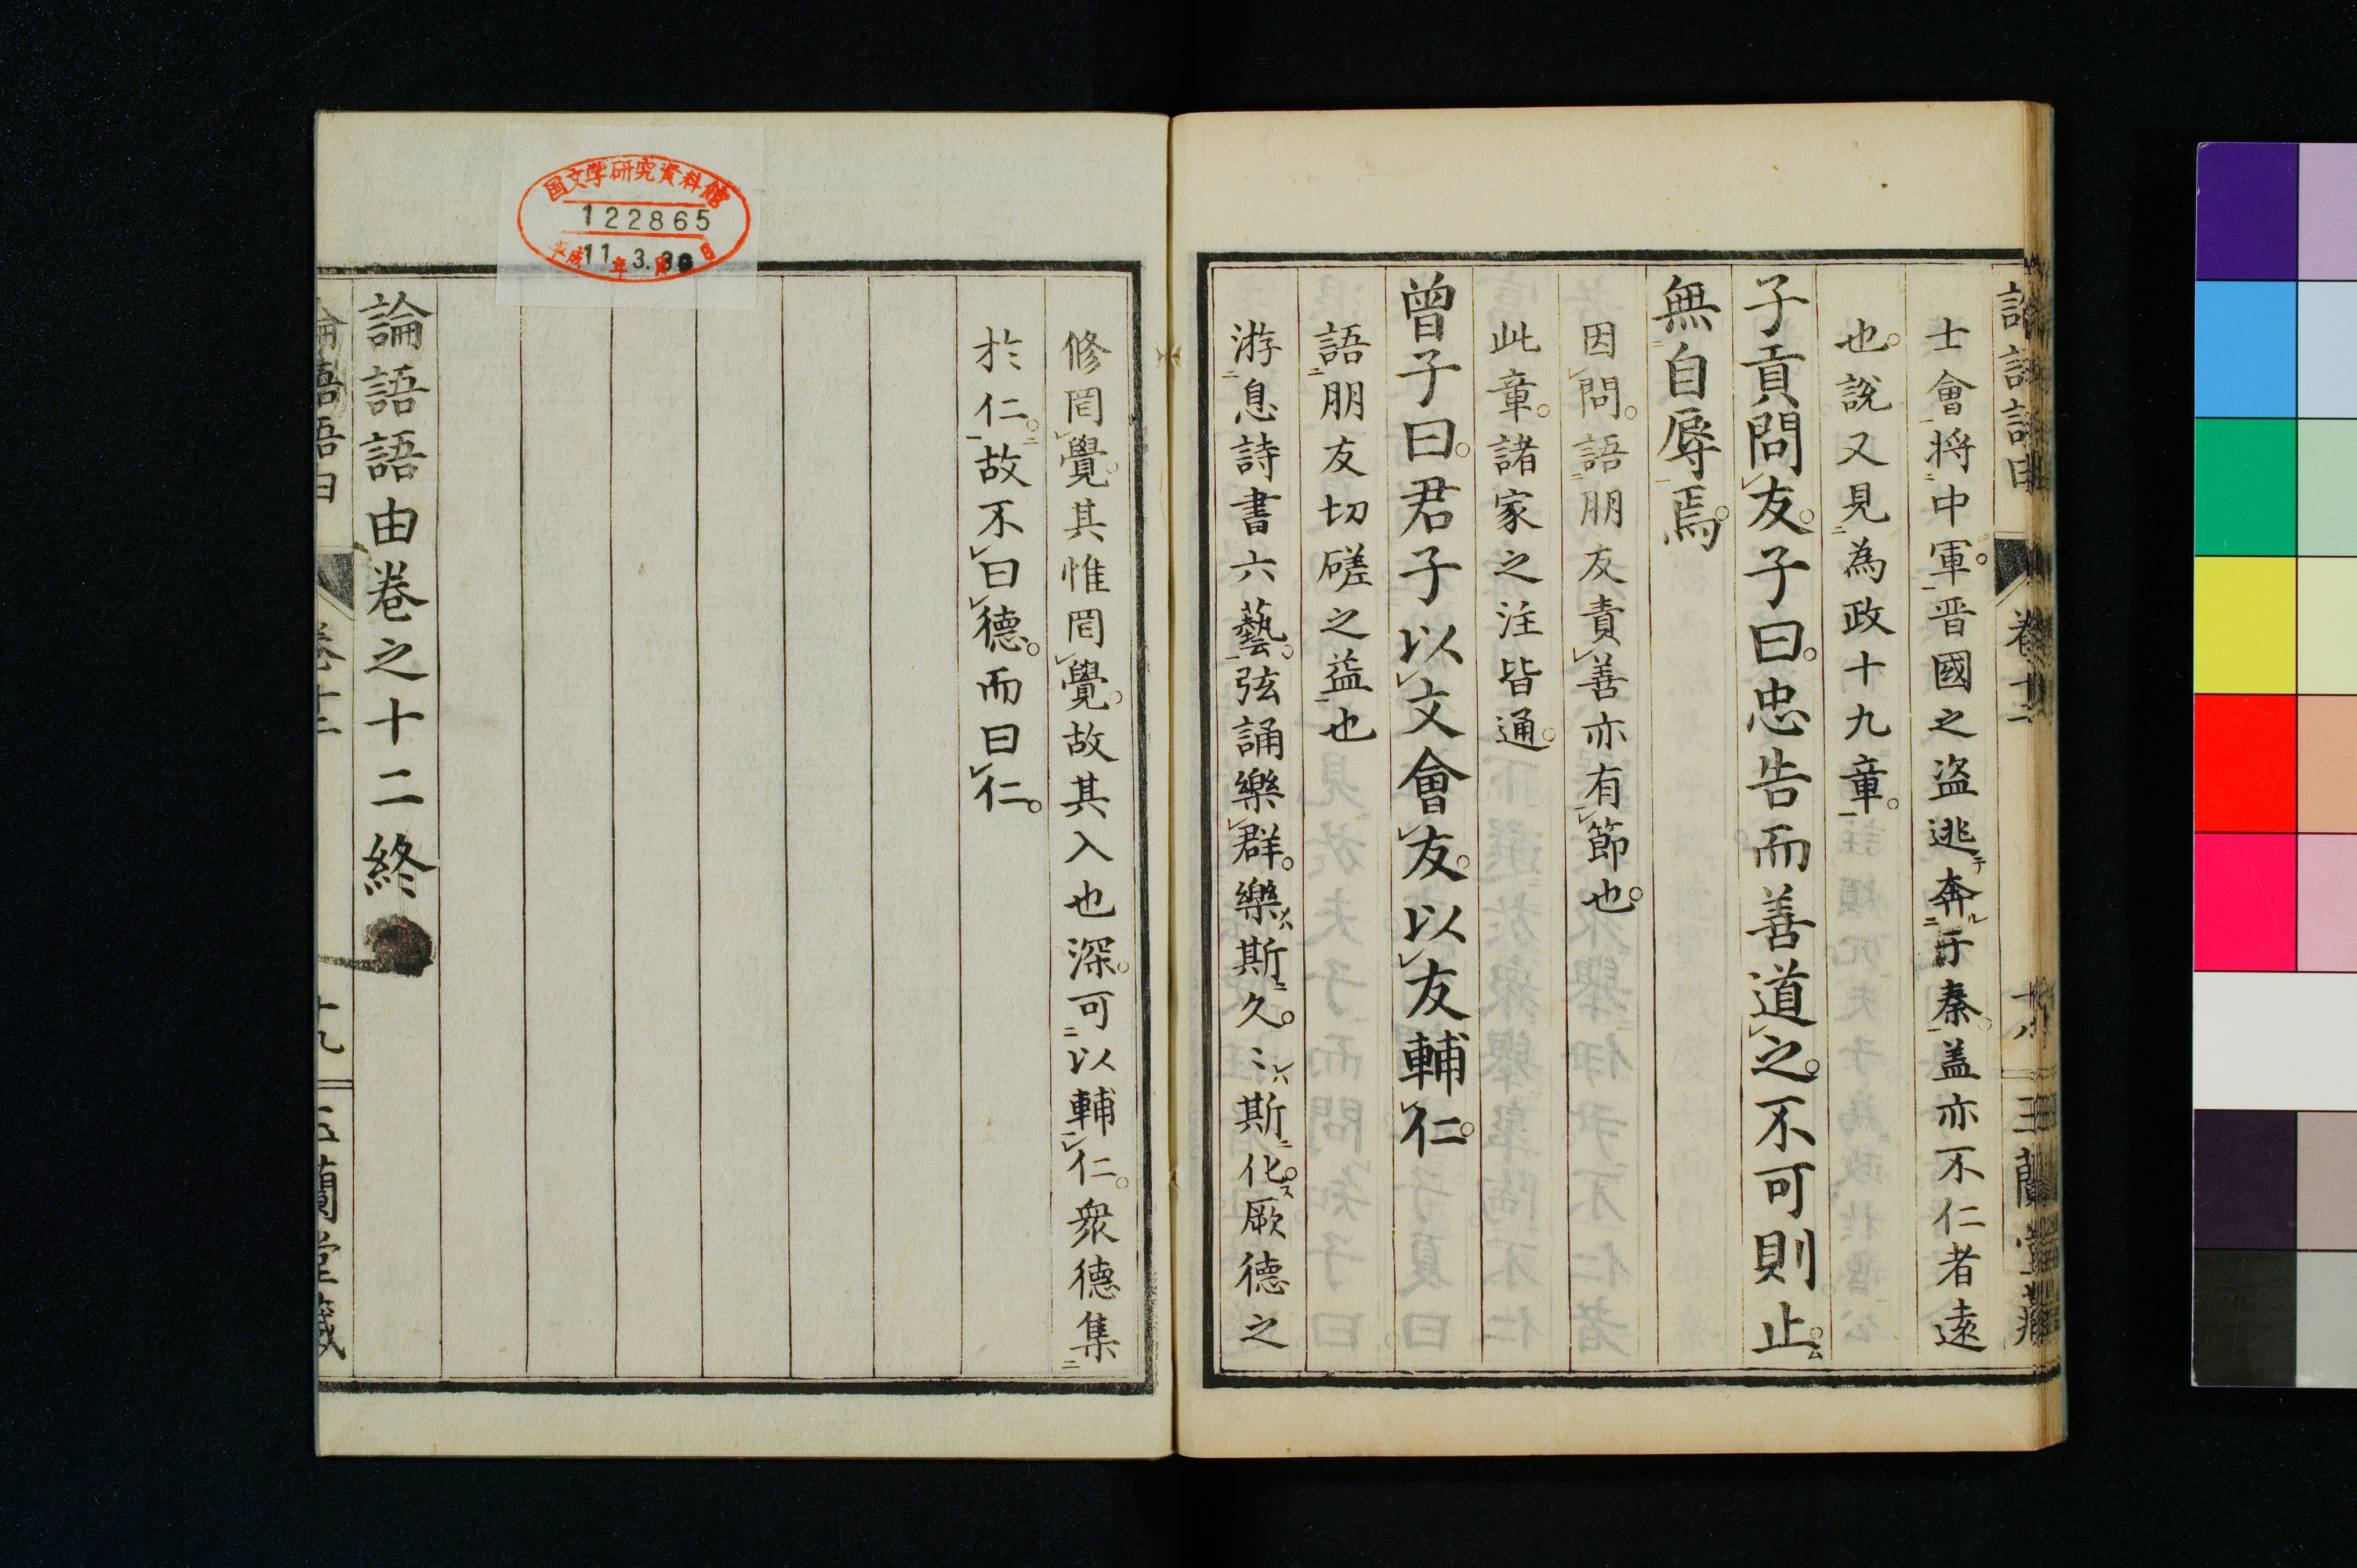 士會將中軍。晋國之盗逃奔于秦。盖亦不仁者遠
也。說又見為政十九章。
子貢問友。子曰。忠告而善道之。不可則止。
無自辱焉。
因問。語朋友責善亦有節也。
此章。諸家之注皆通。
曾子曰。君子以文會友。以友輔仁。
語朋友切磋之益也
游息詩書六藝。弦誦樂群。樂斯久。〻斯化。厥德之
修罔覺。其惟罔覺。故其入也深。可以輔仁。衆德集
於仁。故不曰德。而曰仁。
論語語由卷之十二終
論語語由 卷十二 十九
国文学研究資料館
122865
平成11年3.30日